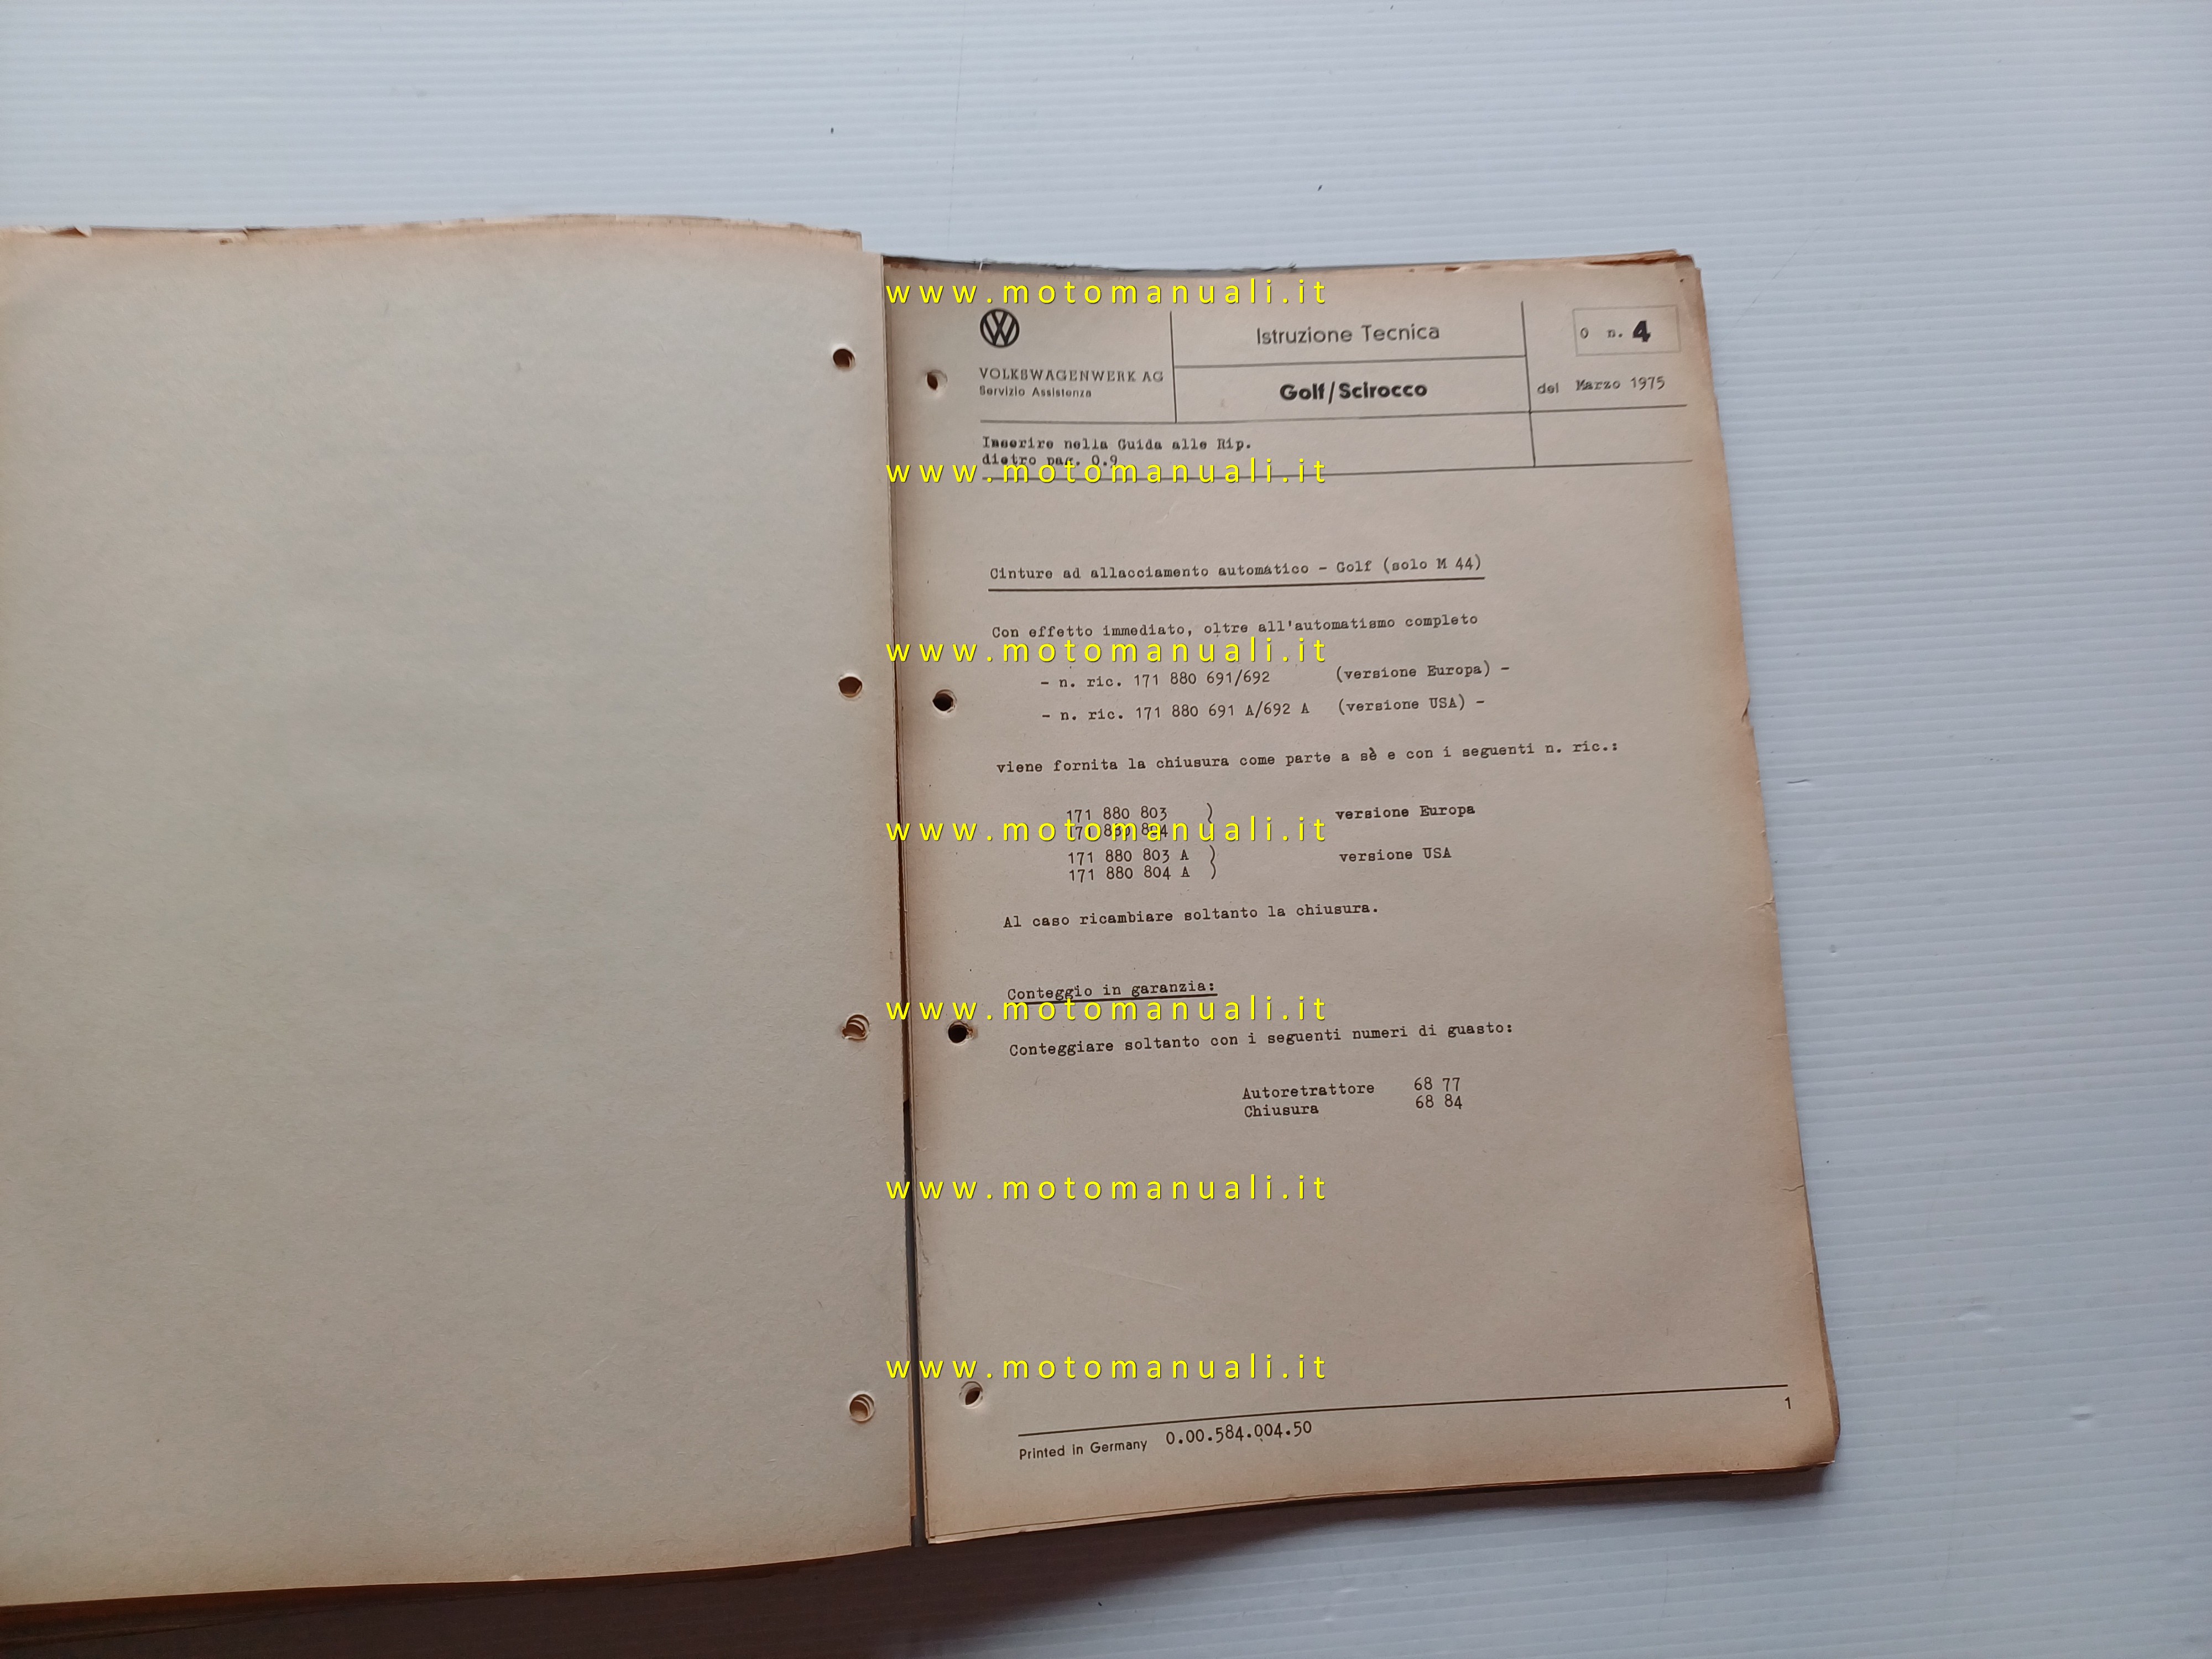 www.motomanuali.it
VOLKSWAGENWERK AG
Servizio Assistenza
Istruzione Tecnica
Golf/Scirocco
0 n. 4
del Marzo 1975
Inserire nella Guida alle Rip.
dietro pag. 0.9
www.motomanuali.it
Cinture ad allacciamento automático - Golf (solo M 44)
Con effetto immediato, oltre all'automatismo completo
www.motomanuali.it
- n. ric. 171 880 691/692 (versione Europa) -
- n. ric. 171 880 691 A/692 A (versione USA) -
viene fornita la chiusura come parte a sè e con i seguenti n. ric.:
171 880 803 ) versione Europa
171 880 804
www.motomanuali.it
171 880 803 A ) versione USA
171 880 804 A )
Al caso ricambiare soltanto la chiusura.
Conteggio in garanzia:
www.motomanuali.it
Conteggiare soltanto con i seguenti numeri di guasto:
Autoretrattore 68 77
Chiusura 68 84
www.motomanuali.it
www.motomanuali.it
Printed in Germany 0.00.584.004.50
1